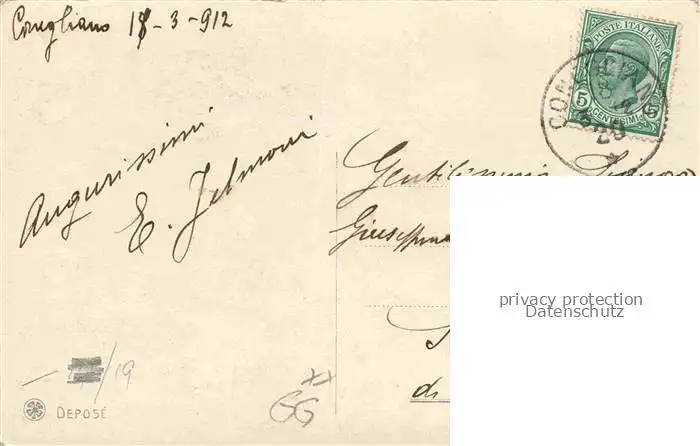 Conegliano 18-3-912
POSTE ITALIANE
5 CENTESIMI 5
Augurissimi
E. Jelmoni
Gentilissima Signora
Giuseppina
di
privacy protection
Datenschutz
/19
GG
DEPOSÉ